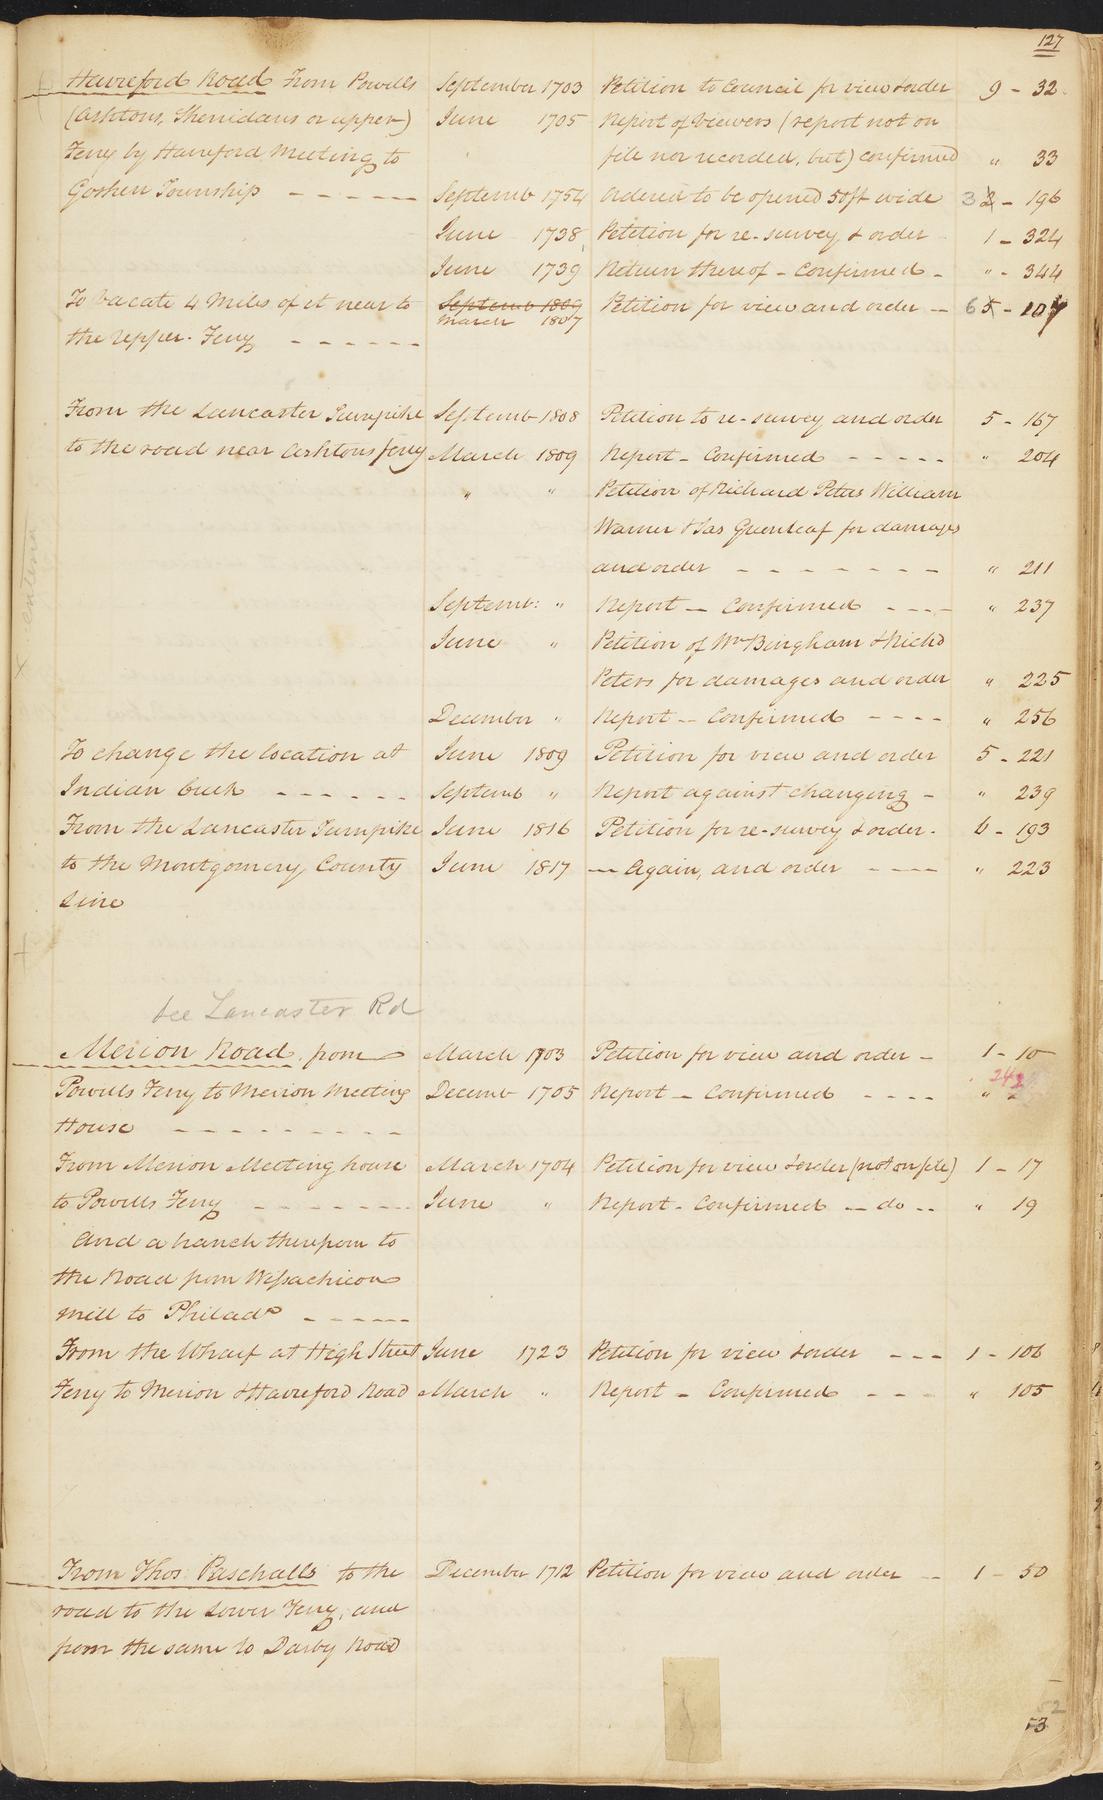 127
Haverford Road From Powells September 1703 Petition to Council for view & order 9 - 32
(Ashtons, Sheridans or upper) June 1705 Report of Viewers (report not on
Ferry by Haverford Meeting to file nor recorded, but) confirmed " 33
Goshen Township - - - - - Septemb 1754 Ordered to be opened 50ft wide 3 - 196
June 1738 Petition for re-survey & order 1 - 324
June 1739 Return thereof - Confirmed - " - 344
To vacate 4 Miles of it near to Septemb 1809 Petition for view and order - 6 5 - 107
March 1807
the Upper Ferry - - - - - -
From the Lancaster Turnpike Septemb 1808 Petition to re-survey and order 5 - 167
to the road near Ashtons ferry March 1809 Report - Confirmed - - - - - " 204
" " Petition of Richard Peters William
Warner & Jas Greenleaf for damages
and order - - - - - - - " 211
Septemb: " Report - Confirmed - - - - " 237
June " Petition of Wm Bingham & Richd
Peters for damages and order " 225
December " Report - Confirmed - - - - " 256
To change the location at June 1809 Petition for view and order 5 - 221
Indian Creek - - - - - - Septemb " Report against changing - " 239
From the Lancaster Turnpike June 1816 Petition for re-survey & order - 6 - 193
to the Montgomery County June 1817 - Again, and order - - - - " 223
Line
See Lancaster Rd
Merion Road, from March 1703 Petition for view and order - 1 - 10
Powells Ferry to Merion Meeting Decemb 1705 Report - Confirmed - - - - " 24
House - - - - - - - - -
From Merion Meeting house March 1704 Petition for view & order (not on file) 1 - 17
to Powells Ferry - - - - - - - June " Report - Confirmed - do - - " 19
And a branch therefrom to
the Road from Wissachicon
mill to Philada - - - - - -
From the Wharf at High Street June 1723 Petition for view & order - - - 1 - 106
Ferry to Merion & Haverford Road March " Report - Confirmed - - - " 105
From Thos Paschalls to the December 1712 Petition for view and order - 1 - 50
road to the Lower Ferry, and
from the same to Darby Road
52
53